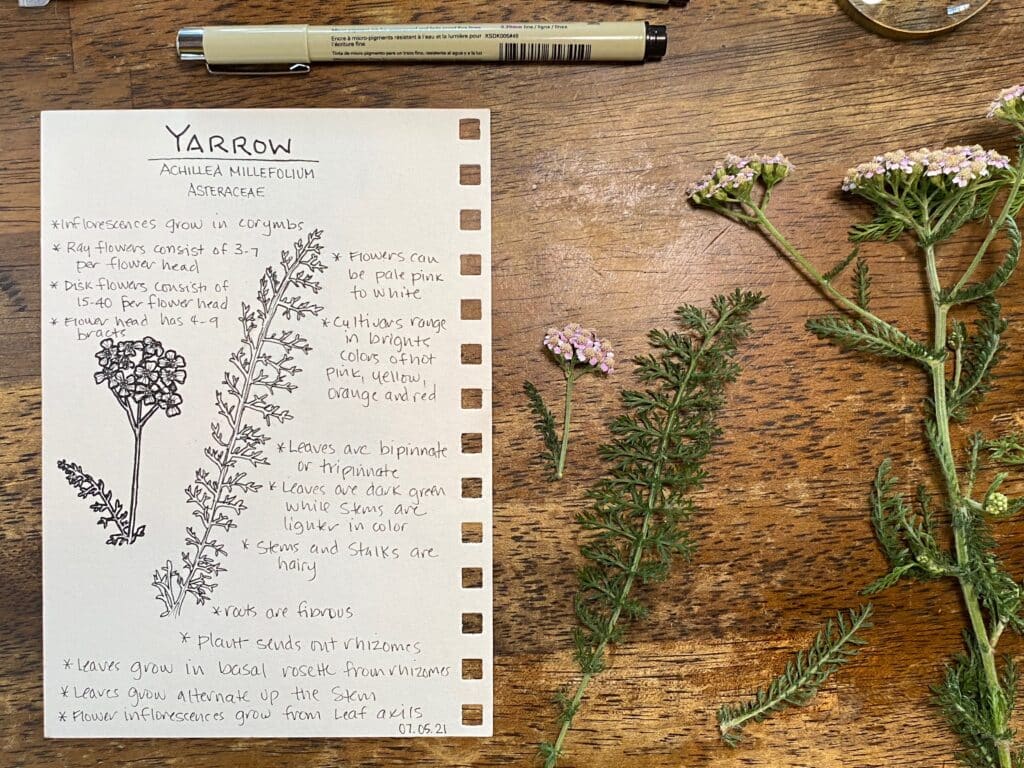 0.20mm line / ligne / línea
Encre à micro-pigments résistant à l'eau et la lumière pour XSDK005#49
l'écriture fine
Tinta de micro-pigmento para un trazo fino, resistente al agua y a la luz
YARROW
ACHILLEA MILLEFOLIUM
ASTERACEAE
*Inflorescences grow in corymbs
* Ray flowers consist of 3-7
per flower head
* Disk flowers consist of
15-40 per flower head
* Flower head has 4-9
bracts
* Flowers can
be pale pink
to white
*Cultivars range
in brights
colors of hot
pink, yellow,
orange and red
*Leaves are bipinnate
or tripinnate
* Leaves are dark green
while stems are
lighter in color
* Stems and Stalks are
hairy
*roots are fibrous
* plant sends out rhizomes
*Leaves grow in basal rosette from rhizomes
*Leaves grow alternate up the Stem
* Flower inflorescences grow from Leaf axils
07.05.21